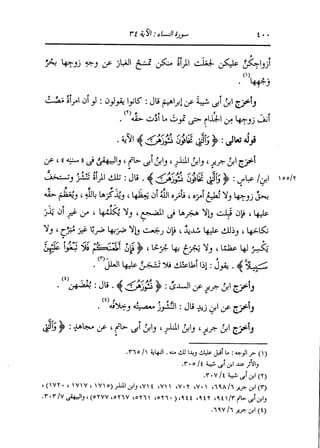 ٤٠٠ سورة النساء : الآية ٣٤
أزواجكن عليكن لجعلت المرأة منكن تمسح الغبار عن وجه زوجها بحُرِّ
وجهها(١).
وأخرج ابن أبى شيبة عن إبراهيم قال : كانوا يقولون : لو أن امرأة مصّت
أنف زوجها من الجذام حتى تموت ما أدّت حقه(٢).
قوله تعالى : ﴿ وَالَّتِي تَخَافُونَ نُشُوزَهُنَّ ﴾ الآية .
أخرج ابن جرير ، وابن المنذر ، وابن أبى حاتم ، والبيهقى فى « سننه » ، عن
١٥٥/٢ ابن / عباس : ﴿ وَالَّتِي تَخَافُونَ نُشُوزَهُنَّ ﴾ . قال : تلك المرأة تنشز وتستخف
بحق زوجها ولا تطيع أمره ، فأمره الله أن يعظها ، ويذكرها بالله ، ويعظم حقه
عليها ، فإن قبلت وإلا هجرها فى المضجع ، ولا يكلمها ، من غير أن يذر
نكاحها ، وذلك عليها شديد ، فإن رجعت وإلا ضربها ضربًا غير مبرح ، ولا
يكسر لها عظمًا ، ولا يجرح بها جرحًا ، ﴿ فَإِنْ أَطَعْنَكُمْ فَلَا تَبْغُوا عَلَيْهِنَّ
سَبِيلًا ﴾ . يقول : إذا أطاعتك فلا تتجنَّ عليها العلل(٣).
وأخرج ابن جرير عن السدى : ﴿ نُشُوزَهُنَّ ﴾ . قال : بغضهن(٤).
وأخرج عن ابن زيد قال : النشوز معصيته وخلافه(٤).
وأخرج ابن جرير ، وابن المنذر ، وابن أبى حاتم ، عن مجاهد : ﴿ وَالَّتِي
(١) حر الوجه : ما أقبل عليك وبدا لك منه . النهاية ٣٦٥/١ .
والأثر عند ابن أبى شيبة ٣٠٥/٤ .
(٢) ابن أبى شيبة ٣٠٧/٤ .
(٣) ابن جرير ٦٩٨/٦ ، ٧٠١ ، ٧٠٢ ، ٧١١ ، ٧١٤ ، وابن المنذر (١٧١٥ ، ١٧١٧ ، ١٧٢٠) ،
وابن أبى حاتم ٩٤١/٣ ، ٩٤٢ ، ٩٤٤ (٥٢٦٠ ، ٥٢٦١ ، ٥٢٦٧ ، ٥٢٧٧) ، والبيهقى ٣٠٣/٧ .
(٤) ابن جرير ٦٩٧/٦ .